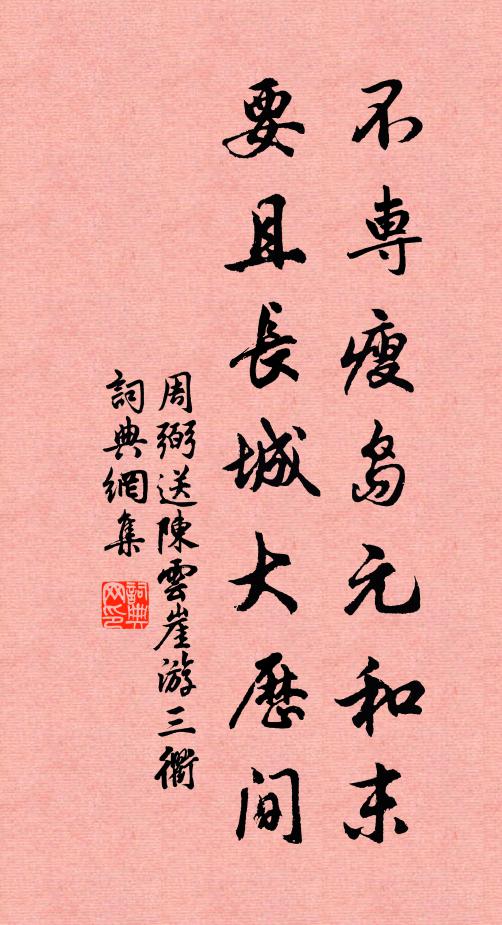 不専瘦島元和末
要且長城大歷間
周弼送陳雲崖游三衢
詞典網集
詞典网印